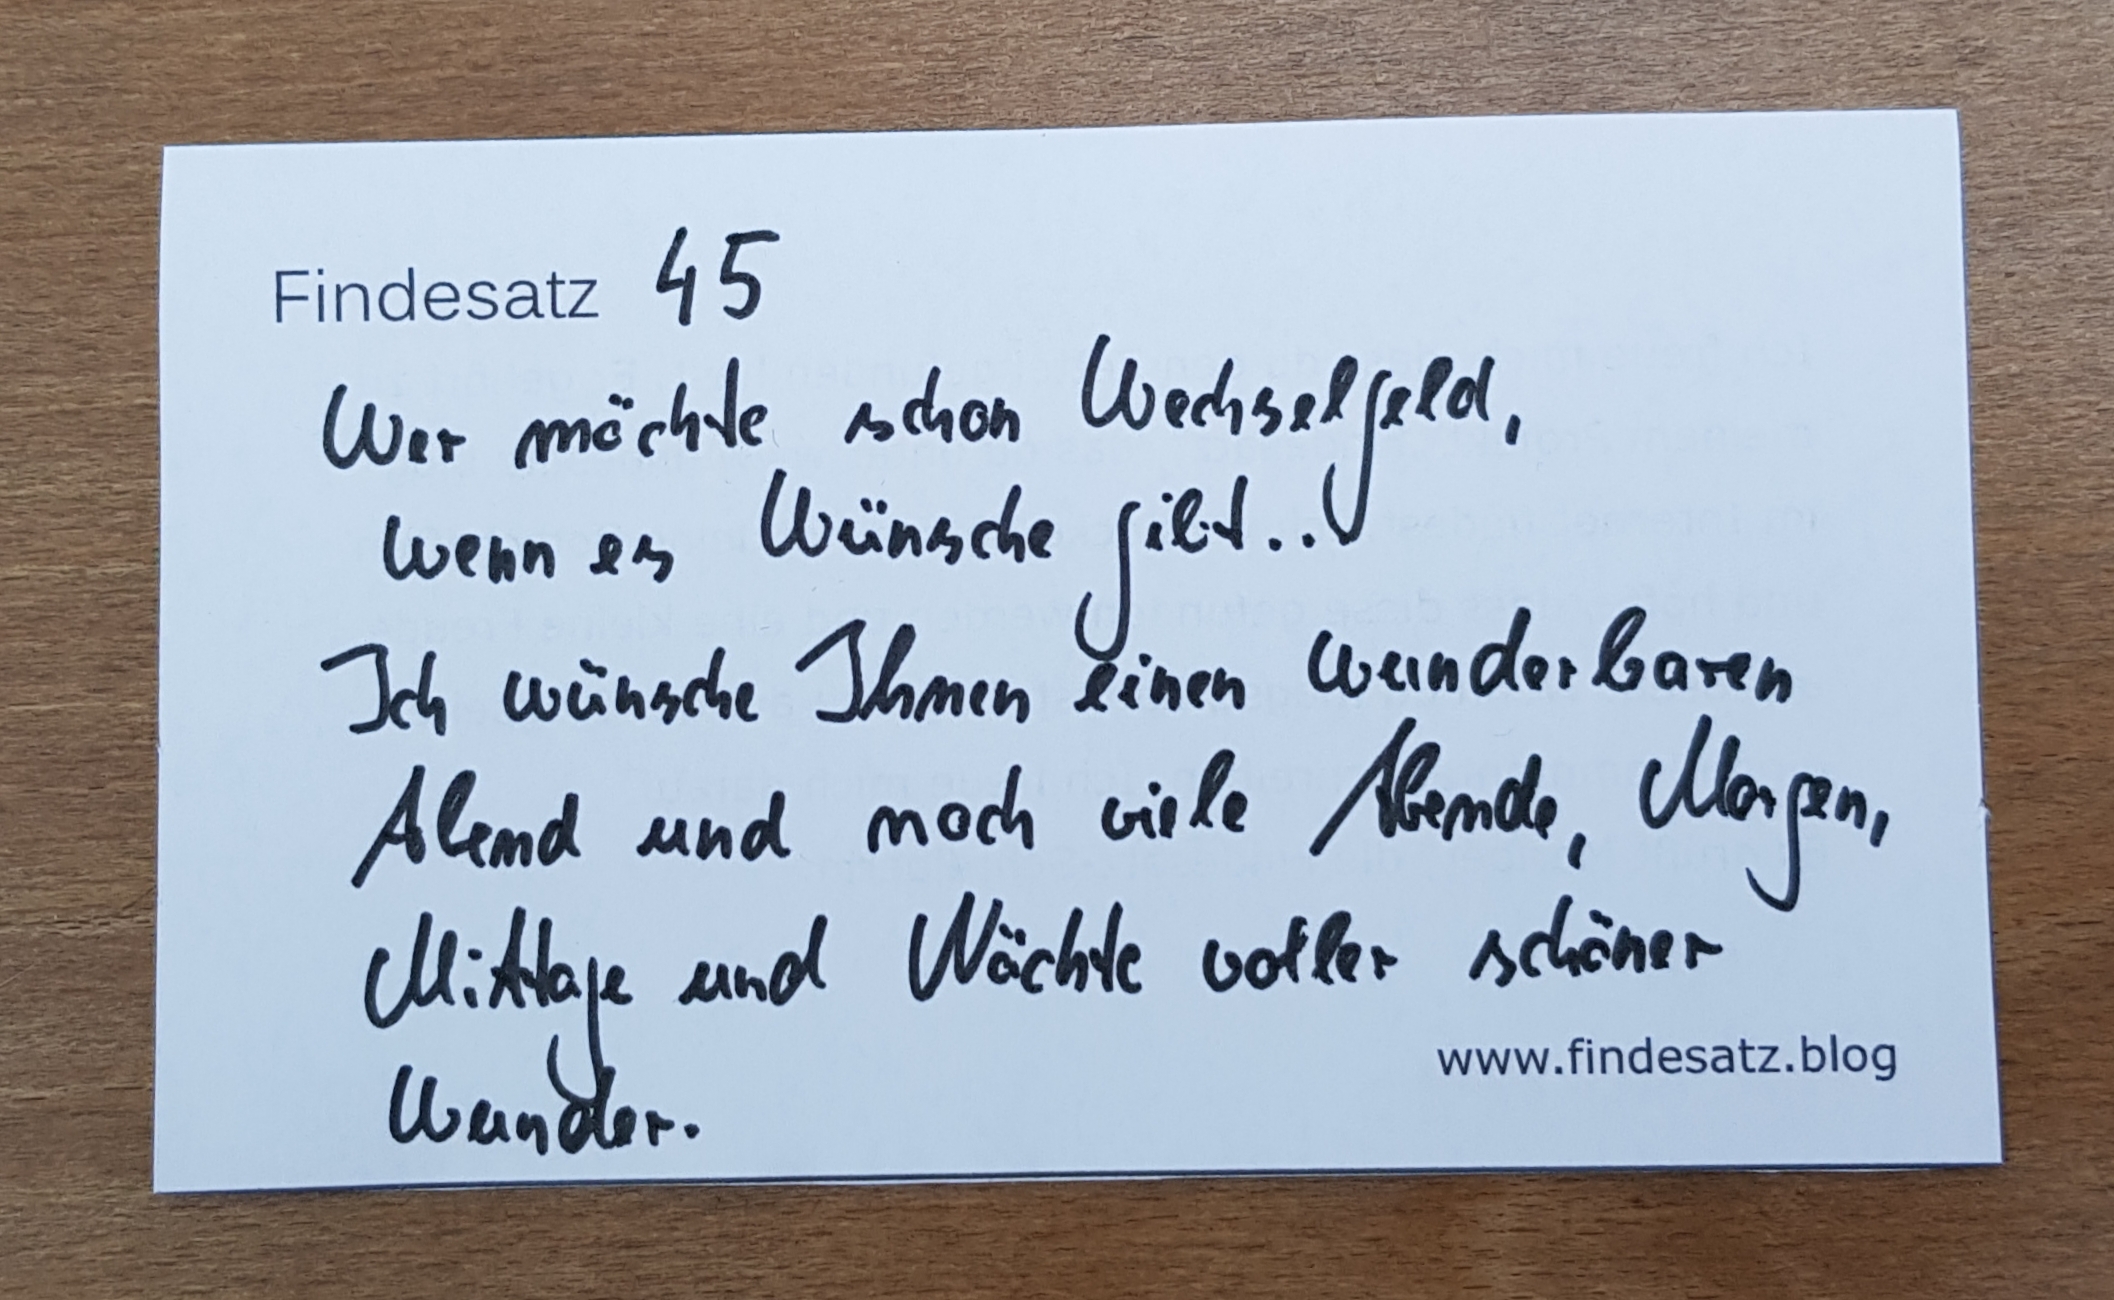 Findesatz 45
Wer möchte schon Wechselgeld,
wenn es Wünsche gibt...
Ich wünsche Ihnen einen wunderbaren
Abend und noch viele Abende, Morgen,
Mittage und Nächte voller schöner
www.findesatz.blog
Wunder.